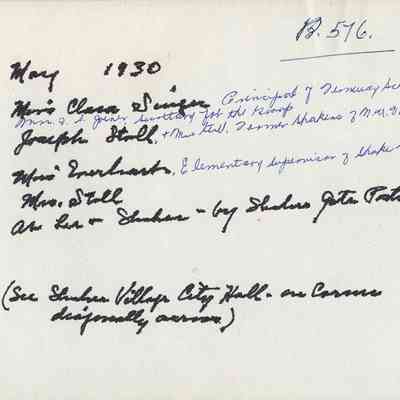 B. 576.
May 1930
Miss Clara Singer Principal of
Secretary for the Group
Joseph Stoll, + Mrs Stoll, Former Shakers of
Miss Everhart, Elementary Supervisor of Shaker
Mrs. Stoll
At Lee + Shaker - by Shakers Gate Posts
(See Shaker Village City Hall - on Corner
diagonally across)